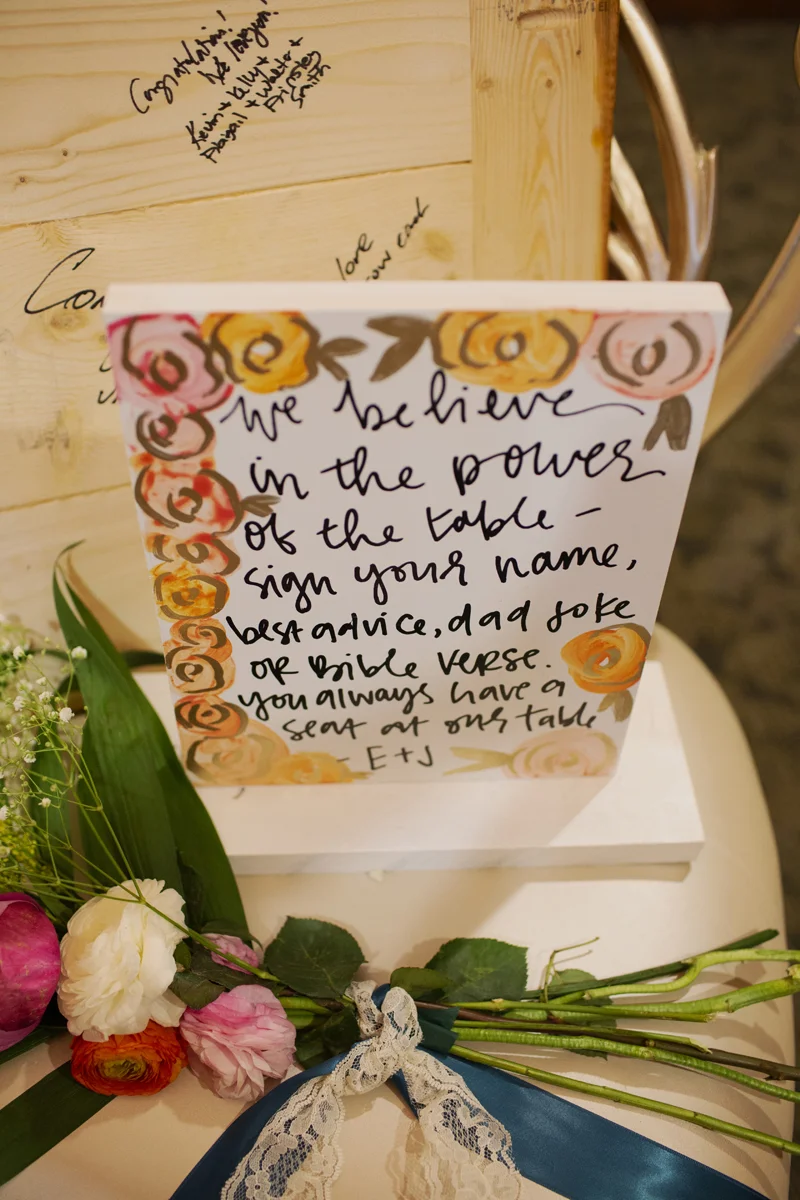 Congratulations!
Kevin + Kelly +
Abigail + Walter +
Smith
love
we believe
in the power
of the table -
sign your name,
best advice, dad joke
or Bible verse.
you always have a
seat at our table
- E+J